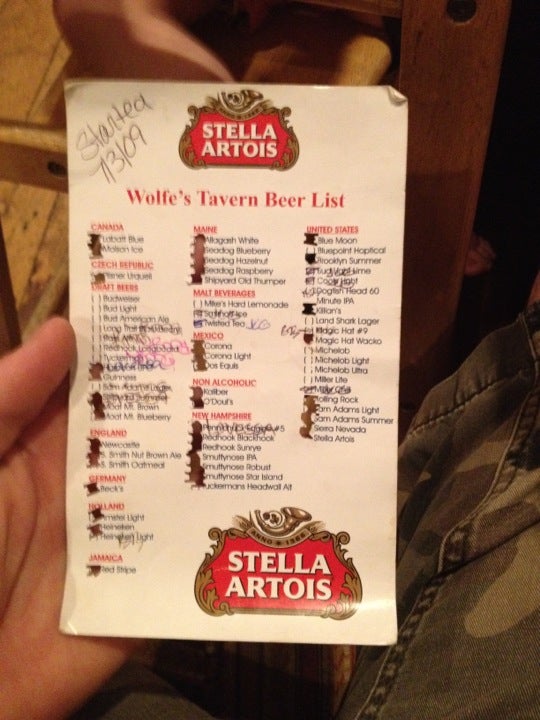 Started
7/3/09
STELLA
ARTOIS
Wolfe's Tavern Beer List
CANADA
Labatt Blue
Molson Ice
CZECH REPUBLIC
Pilsner Urquell
DRAFT BEERS
Budweiser
Bud Light
Bud American Ale
Long Trail
Redhook Longhammer
Guinness
Sam Adams Lager
Moat Mt. Brown
Moat Mt. Blueberry
ENGLAND
Newcastle
S. Smith Nut Brown Ale
S. Smith Oatmeal
GERMANY
Beck's
HOLLAND
Amstel Light
Heineken
Heineken Light
JAMAICA
Red Stripe
MAINE
Allagash White
Seadog Blueberry
Seadog Hazelnut
Seadog Raspberry
Shipyard Old Thumper
MALT BEVERAGES
Mike's Hard Lemonade
Smirnoff Ice
Twisted Tea
MEXICO
Corona
Corona Light
Dos Equis
NON ALCOHOLIC
Kaliber
O'Doul's
NEW HAMPSHIRE
#5
Redhook Blackhook
Redhook Sunrye
Smuttynose IPA
Smuttynose Robust
Smuttynose Star Island
Tuckermans Headwall Alt
UNITED STATES
Blue Moon
Bluepoint Hoptical
Brooklyn Summer
Bud Light Lime
Coors Light
Dogfish Head 60
Minute IPA
Killian's
Land Shark Lager
Magic Hat #9
Magic Hat Wacko
Michelob
Michelob Light
Michelob Ultra
Miller Lite
Rolling Rock
Sam Adams Light
Sam Adams Summer
Sierra Nevada
Stella Artois
ANNO 1366
STELLA
ARTOIS